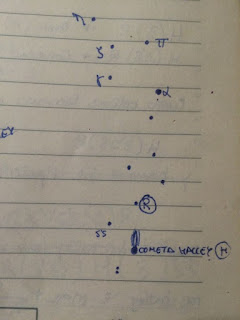 η
π
ζ
γ
α
EY
R
55
COMETA HALLEY H